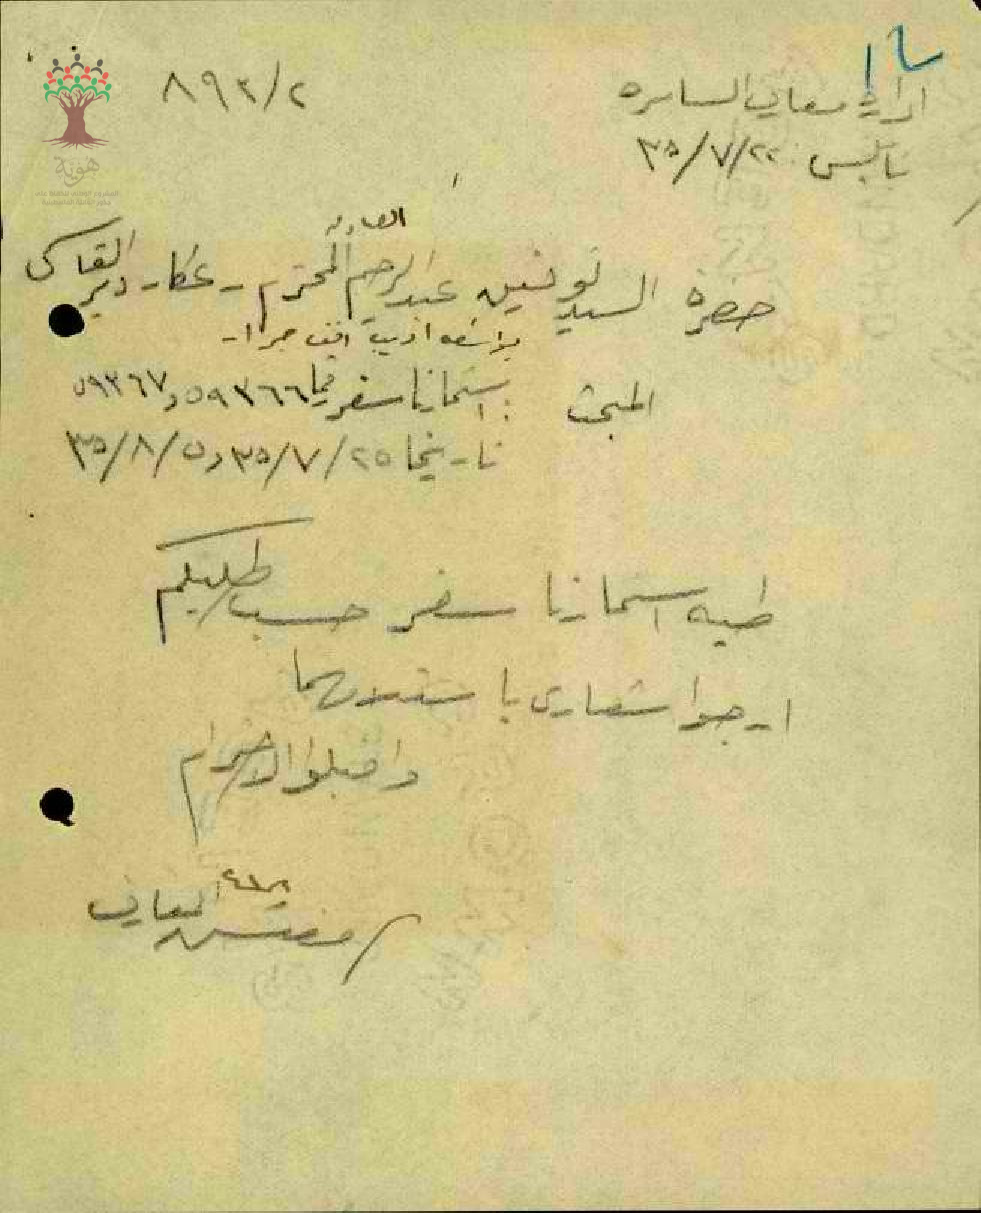 ١٦
ادارة معارف السامره
٨٩٢/٢
نابلس ٢٢/٧/٣٥
هوية
حضرة السيد توفيق عبد الرحيم المحترم - عكا - دير القاسي
بواسطة اديب افندي جرار
المبحث : استمارتا سفر رقما ٥٩٣٦٦ و ٥٩٣٦٧
تاريخا ٢٥/٧/٣٥ و ٥/٨/٣٥
طيه استمارتا سفر حسب طلبكم
ارجو اشعاري باستلامهما
واقبلوا الاحترام
مفتش المعارف